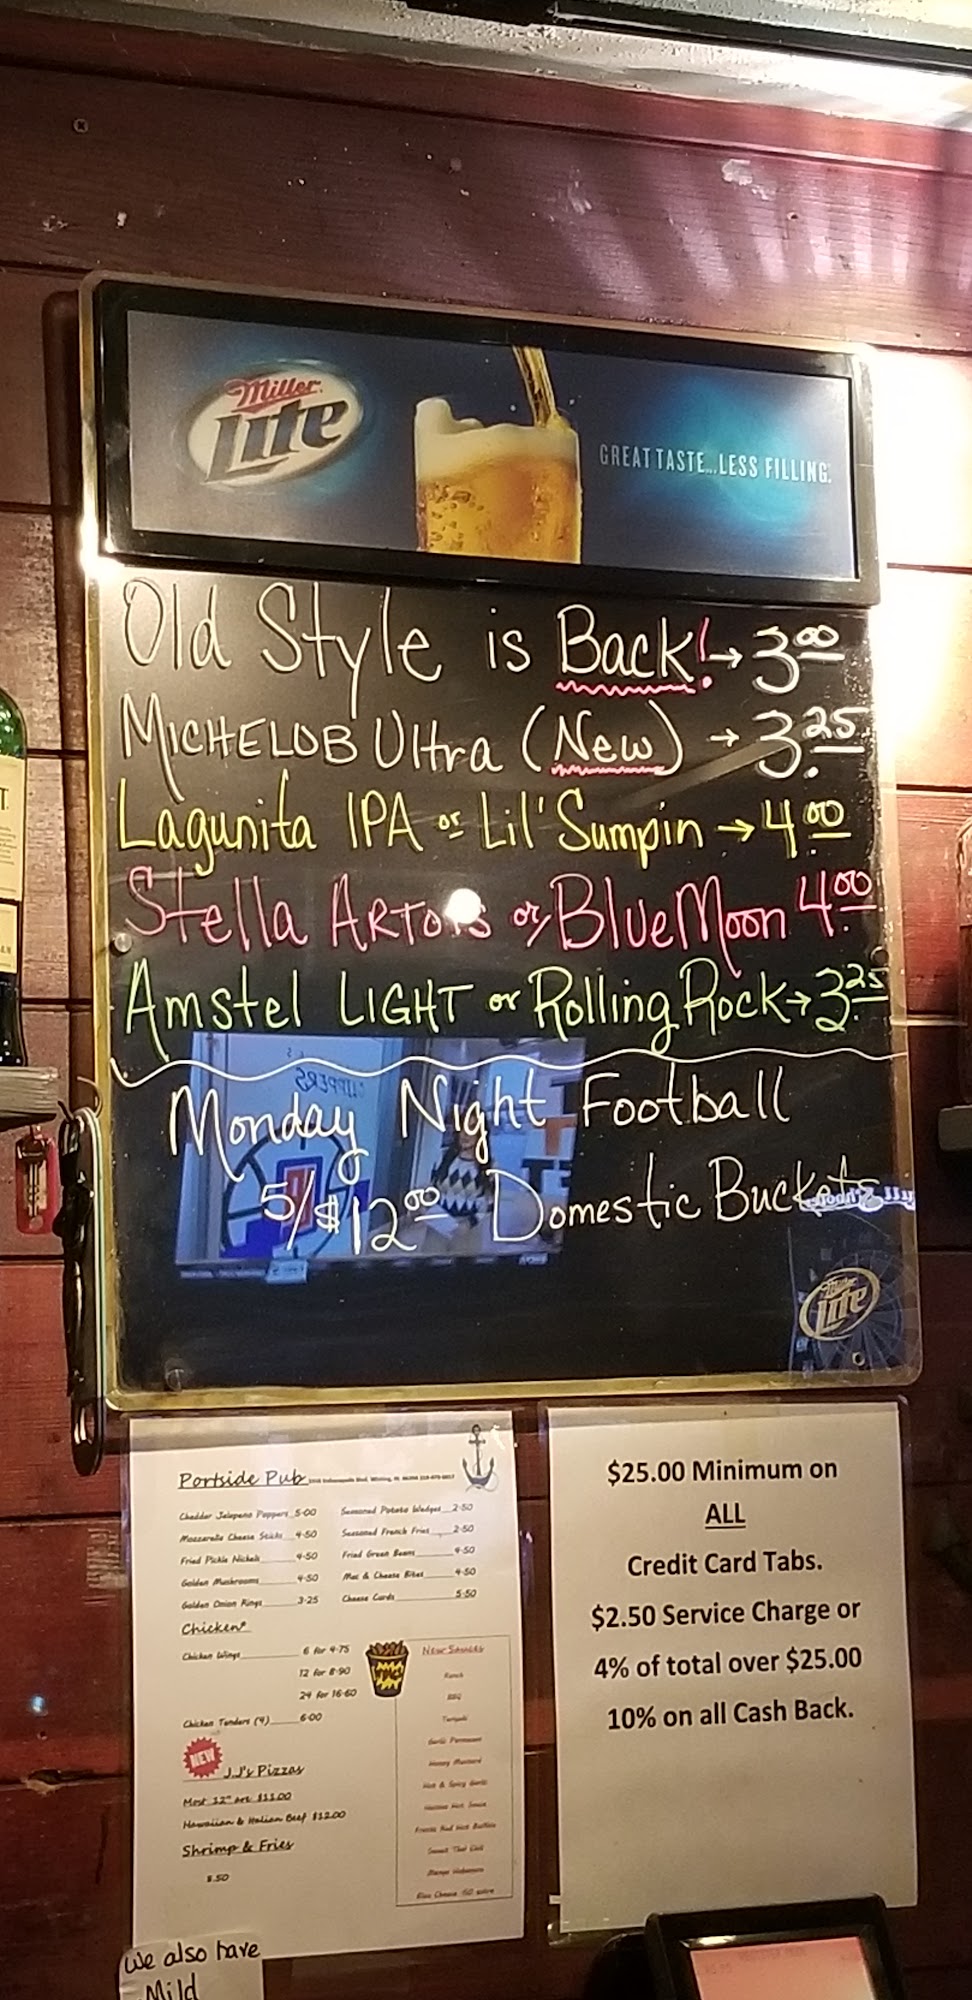 Miller
Lite
GREAT TASTE...LESS FILLING.
Old Style is Back! → 3.00
MICHELOB Ultra (New) → 3.25
Lagunita IPA or Lil' Sumpin → 4.00
Stella ARTOIS or Blue Moon 4.00
Amstel LIGHT or Rolling Rock → 3.25
Monday Night Football
5/$12.00 Domestic Buckets
Miller
Lite
Portside Pub
Cheddar Jalapeno Poppers 5.00
Mozzarella Cheese Sticks 4.50
Fried Pickle Nickels 4.50
Golden Mushrooms 4.50
Golden Onion Rings 3.25
Seasoned Potato Wedges 2.50
Seasoned French Fries 2.50
Fried Green Beans 4.50
Mac & Cheese Bites 4.50
Cheese Curds 5.50
Chicken
Chicken Wings 6 for 4.75
12 for 8.90
24 for 16.60
Chicken Tenders (4) 6.00
NEW
J.J's Pizzas
Most 12" are $11.00
Hawaiian & Italian Beef $12.00
Shrimp & Fries
8.50
Ranch
BBQ
Teriyaki
Garlic Parmesan
Honey Mustard
Hot & Spicy Garlic
Mango Habanero
$25.00 Minimum on
ALL
Credit Card Tabs.
$2.50 Service Charge or
4% of total over $25.00
10% on all Cash Back.
We also have
Mild